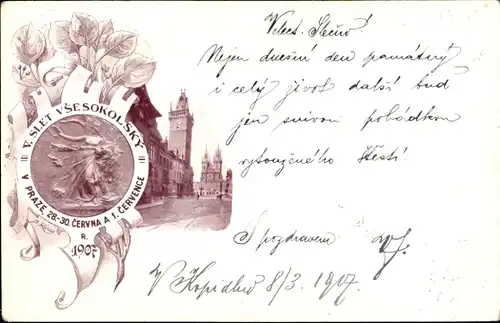 V. SLET VŠESOKOLSKÝ
V PRAZE 28.-30. ČERVNA A 1. ČERVENCE
R.
1907
Velect. Slečno!
Nejen dnešní den památný
i celý život další buď
jen snivou pohádkou
vytouženého štěstí.
S pozdravem
V Kopidlně 8/3. 1907.